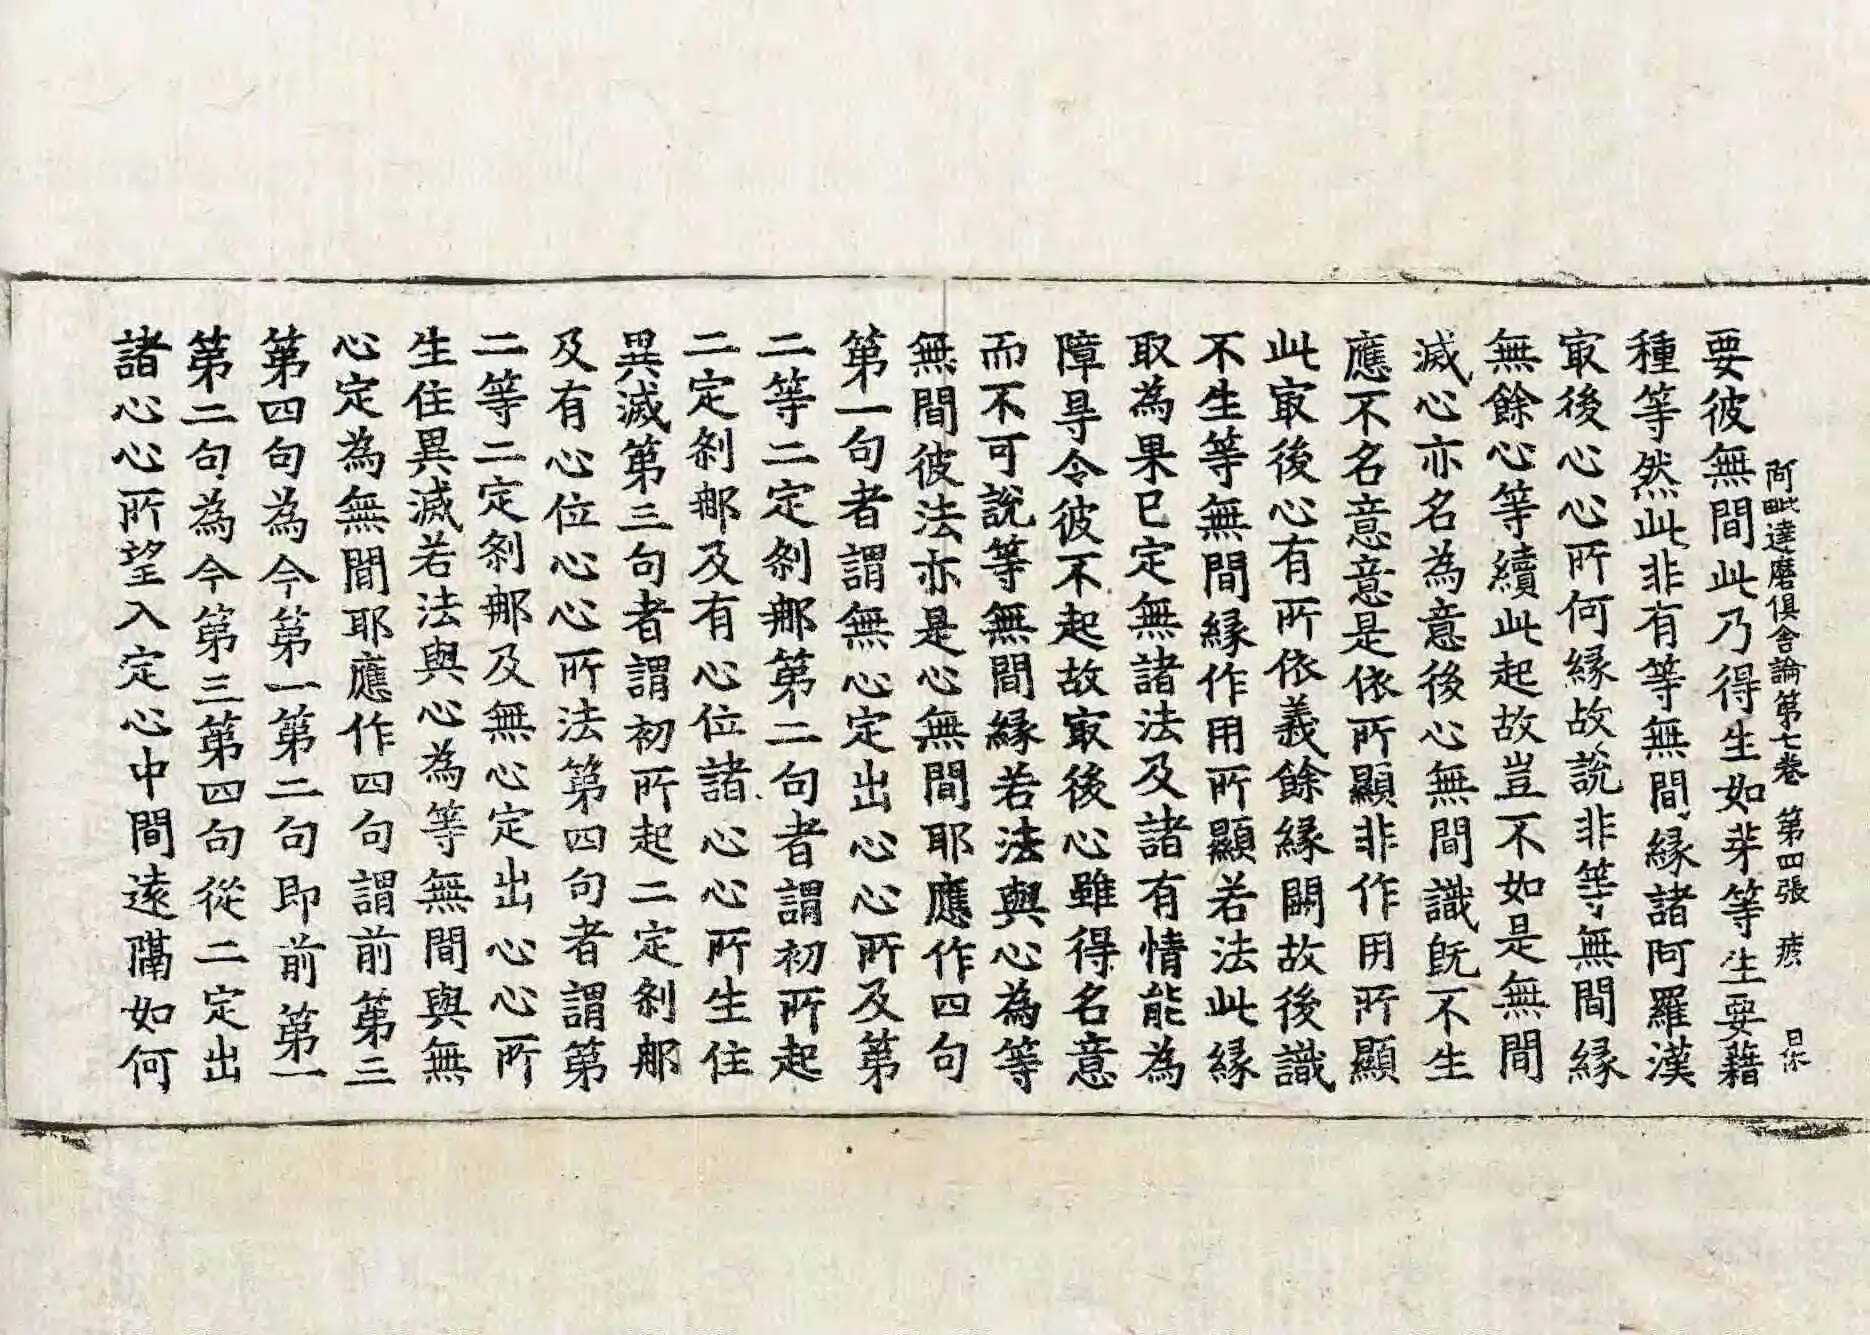 阿毗達磨俱舍論第七卷 第四張 疲 日休
要彼無間此乃得生如芽等生要藉
種等然此非有等無間緣諸阿羅漢
㝡後心心所何緣故說非等無間緣
無餘心等續此起故豈不如是無間
滅心亦名為意後心無間識旣不生
應不名意意是依所顯非作用所顯
此㝡後心有所依義餘緣闕故後識
不生等無間緣作用所顯若法此緣
取為果已定無諸法及諸有情能為
障㝵令彼不起故㝡後心雖得名意
而不可說等無間緣若法與心為等
無間彼法亦是心無間耶應作四句
第一句者謂無心定出心心所及第
二等二定剎那第二句者謂初所起
二定剎那及有心位諸心心所生住
異滅第三句者謂初所起二定剎那
及有心位心心所法第四句者謂第
二等二定剎那及無心定出心心所
生住異滅若法與心為等無間與無
心定為無間耶應作四句謂前第三
第四句為今第一第二句即前第一
第二句為今第三第四句從二定出
諸心心所望入定心中間遠隔如何